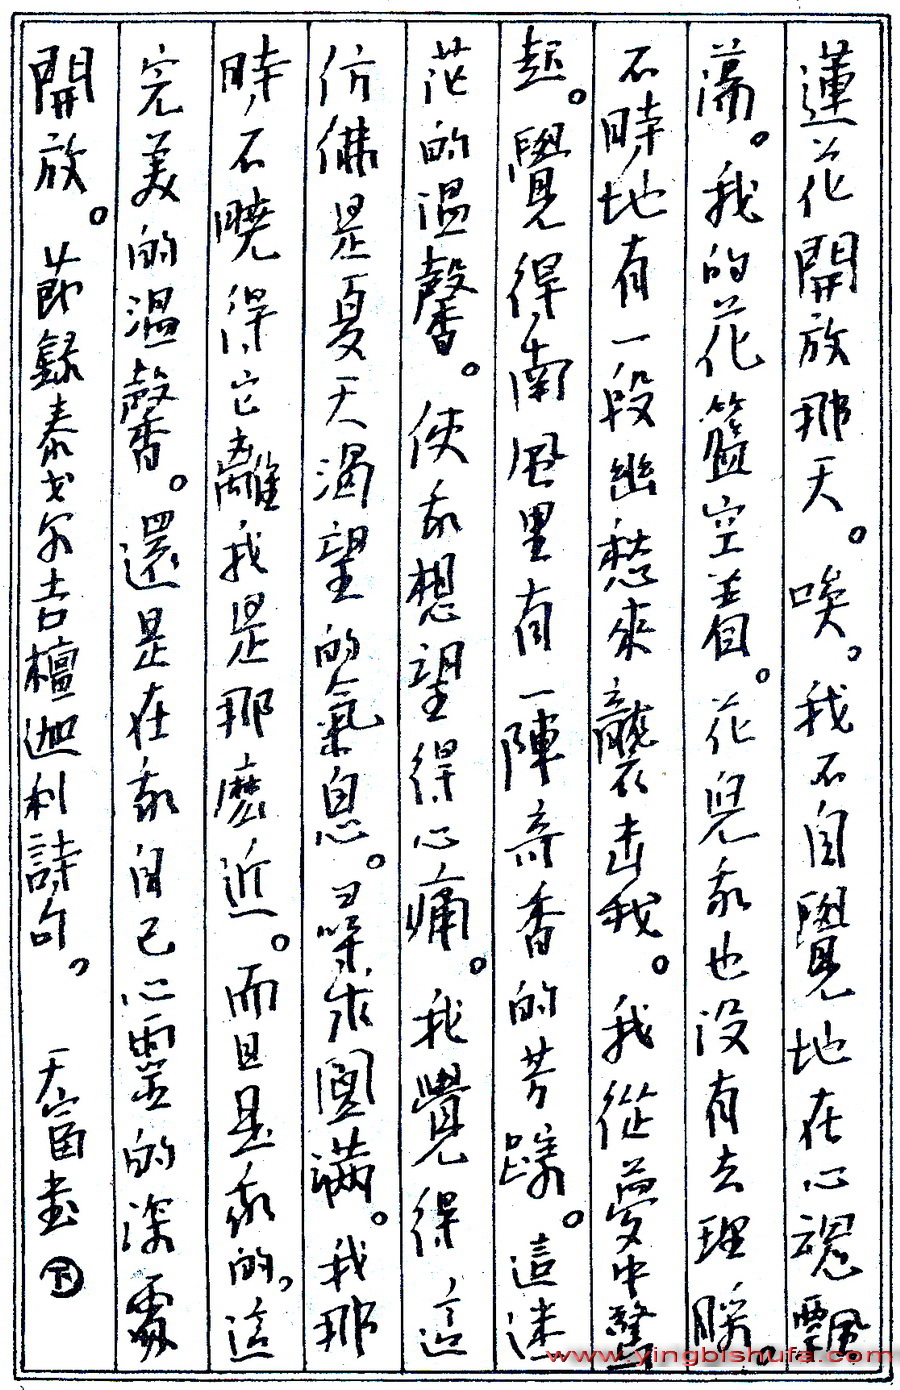 蓮花開放那天。唉。我不自覺地在心魂飄
蕩。我的花籃空着。花兒我也没有去理睬。
不時地有一段幽愁來襲击我。我從夢中驚
起。覺得南風里有一陣奇香的芳蹤。這迷
茫的温馨。使我想望得心痛。我覺得這
仿佛是夏天渴望的氣息。尋求圓满。我那
時不曉得它離我是那麽近。而且是我的。這
完美的温馨。還是在我自己心靈的深處
開放。節録泰戈尔吉檀迦利詩句。 天富书
www.yingbishufa.com